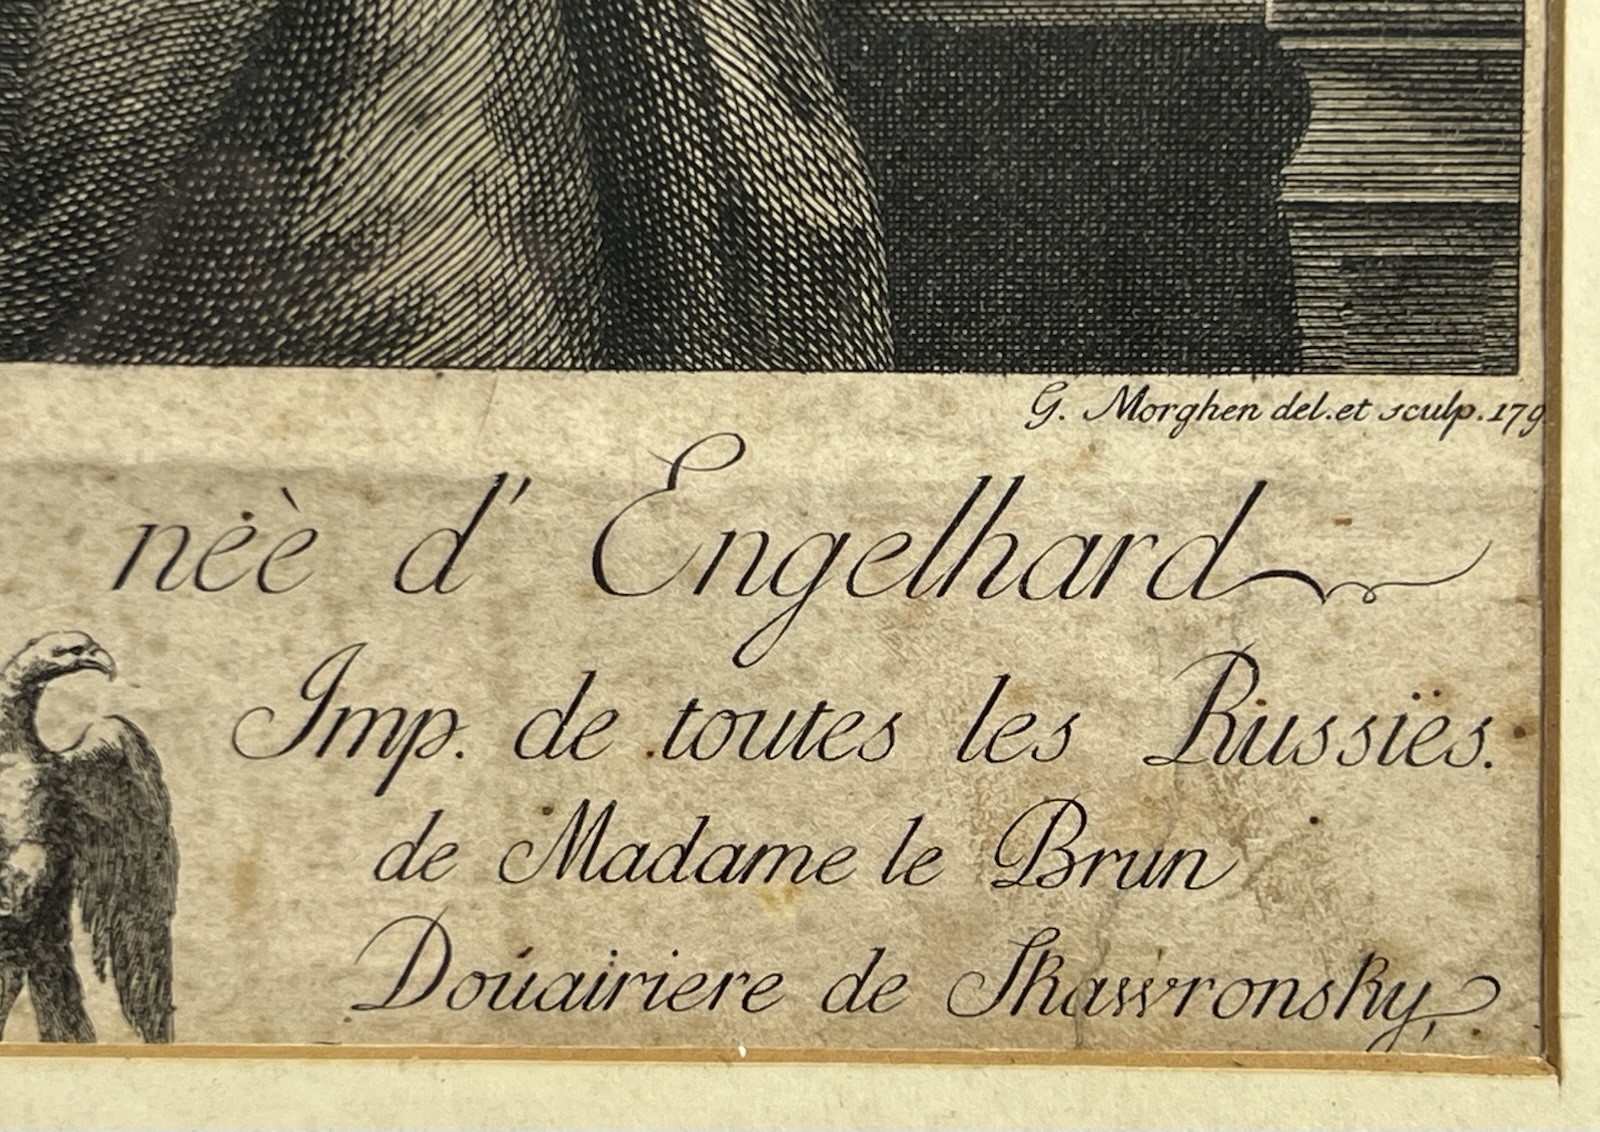 G. Morghen del. et sculp. 179
néè d' Engelhard
Imp. de toutes les Russiës.
de Madame le Brun
Doúairiere de Skawronsky,